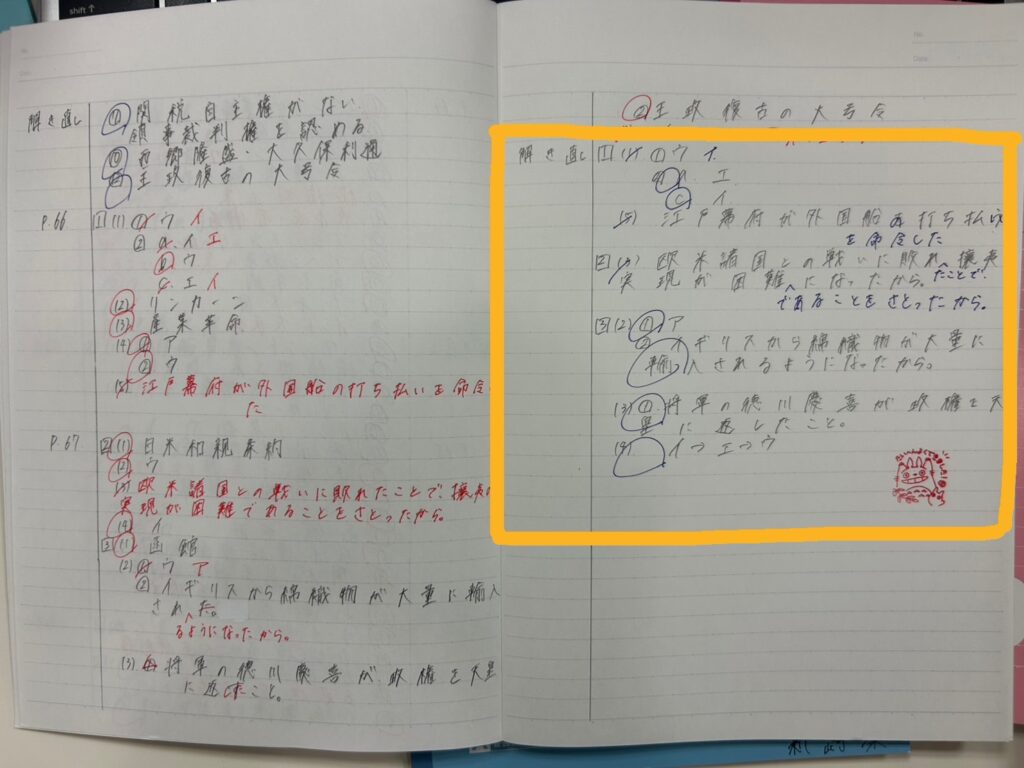 No.
Date
解き直し
① 関税自主権がない
領事裁判権を認める
② 西郷隆盛・大久保利通
王政復古の大号令
P.66 1 (1) ① ウ イ
② a. イ エ
b. ウ
c. エ イ
(2) リンカーン
(3) 産業革命
(4) ① ア
② ウ
(5) 江戸幕府が外国船の打ち払いを命令し
た
P.67 2 (1) 日米和親条約
(2) ウ
(3) 欧米諸国との戦いに敗れたことで、攘夷の
実現が困難であることをさとったから。
(4) イ
3 (1) 函館
(2) ① ウ ア
② イギリスから綿織物が大量に輸入
された。
るようになったから。
(3) 将軍の徳川慶喜が政権を天皇
に返したこと。
No.
Date
② 王政復古の大号令
解き直し 1 (1) ① ウ イ
a. エ
c イ
(5) 江戸幕府が外国船の打ち払い
を命令した
2 (3) 欧米諸国との戦いに敗れ、攘夷
たことで
実現が困難になったから。
であることをさとったから。
3 (2) ① ア
② イギリスから綿織物が大量に
輸入されるようになったから。
(3) ① 将軍の徳川慶喜が政権を天
皇に返したこと。
イ→エ→ウ
shift